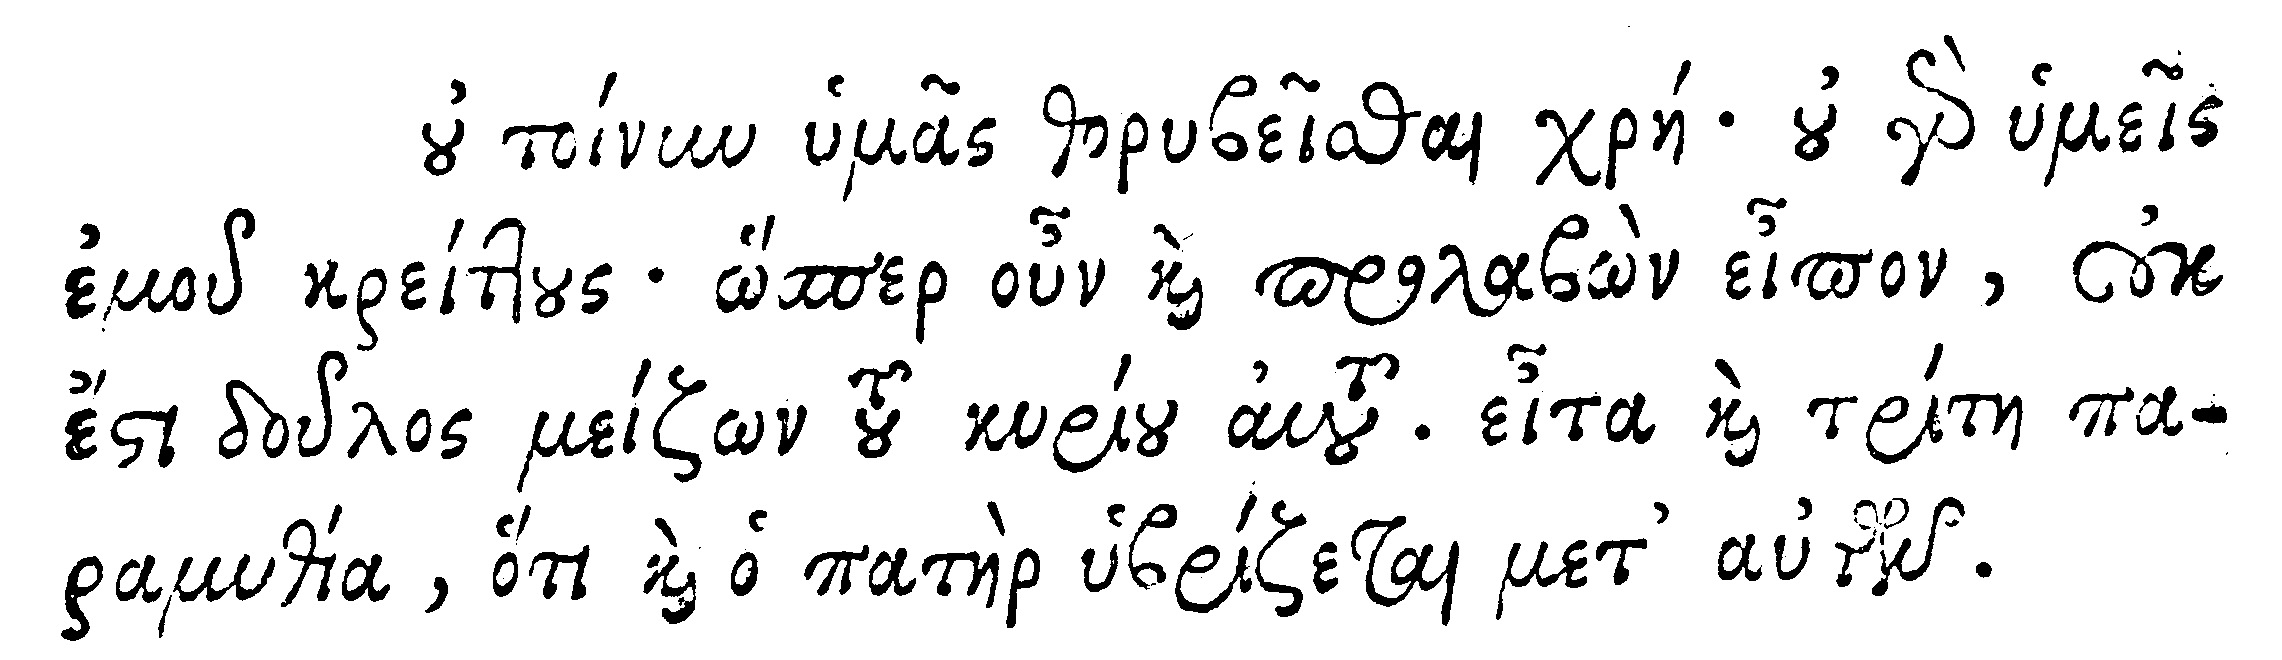 οὐ τοίνυν ὑμᾶς θορυβεῖσθαι χρή· οὐ γὰρ ὑμεῖς
ἐμοῦ κρείττους· ὥσπερ οὖν καὶ προλαβὼν εἶπον, οὐκ
ἔστι δοῦλος μείζων τοῦ κυρίου αὐτοῦ. εἶτα καὶ τρίτη πα-
ραμυθία, ὅτι καὶ ὁ πατὴρ ὑβρίζεται μετ' αὐτοῦ.